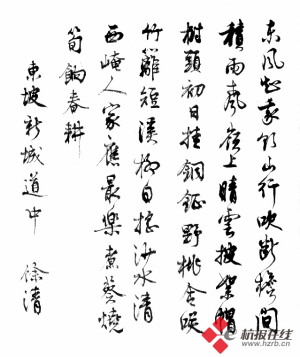 东風知我欲山行吹断檐間
積雨聲嶺上晴雲披絮帽
樹頭初日挂銅鉦野桃含咲
竹籬短溪柳自搖沙水清
西崦人家應最樂煮葵燒
筍餉春耕
東坡新城道中 徐清
杭报在线
www.hzrb.cn